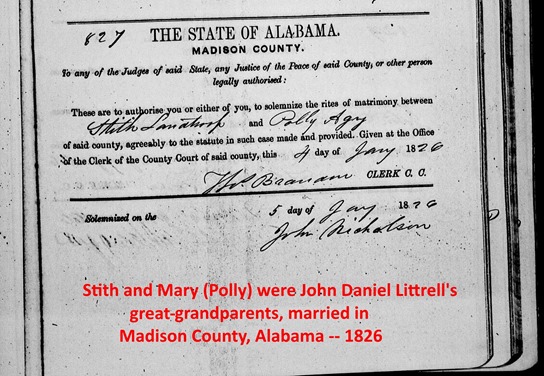 827
THE STATE OF ALABAMA.
MADISON COUNTY.
To any of the Judges of said State, any Justice of the Peace of said County, or other person
legally authorised:
These are to authorise you or either of you, to solemnize the rites of matrimony between
Stith Landtroop and Polly Agy
of said county, agreeably to the statute in such case made and provided. Given at the Office
of the Clerk of the County Court of said county, this 4 day of Jany 1826
Thos Branam CLERK C. C.
Solemnized on the 5 day of Jany 1826
John Nicholson
Stith and Mary (Polly) were John Daniel Littrell's
great-grandparents, married in
Madison County, Alabama -- 1826